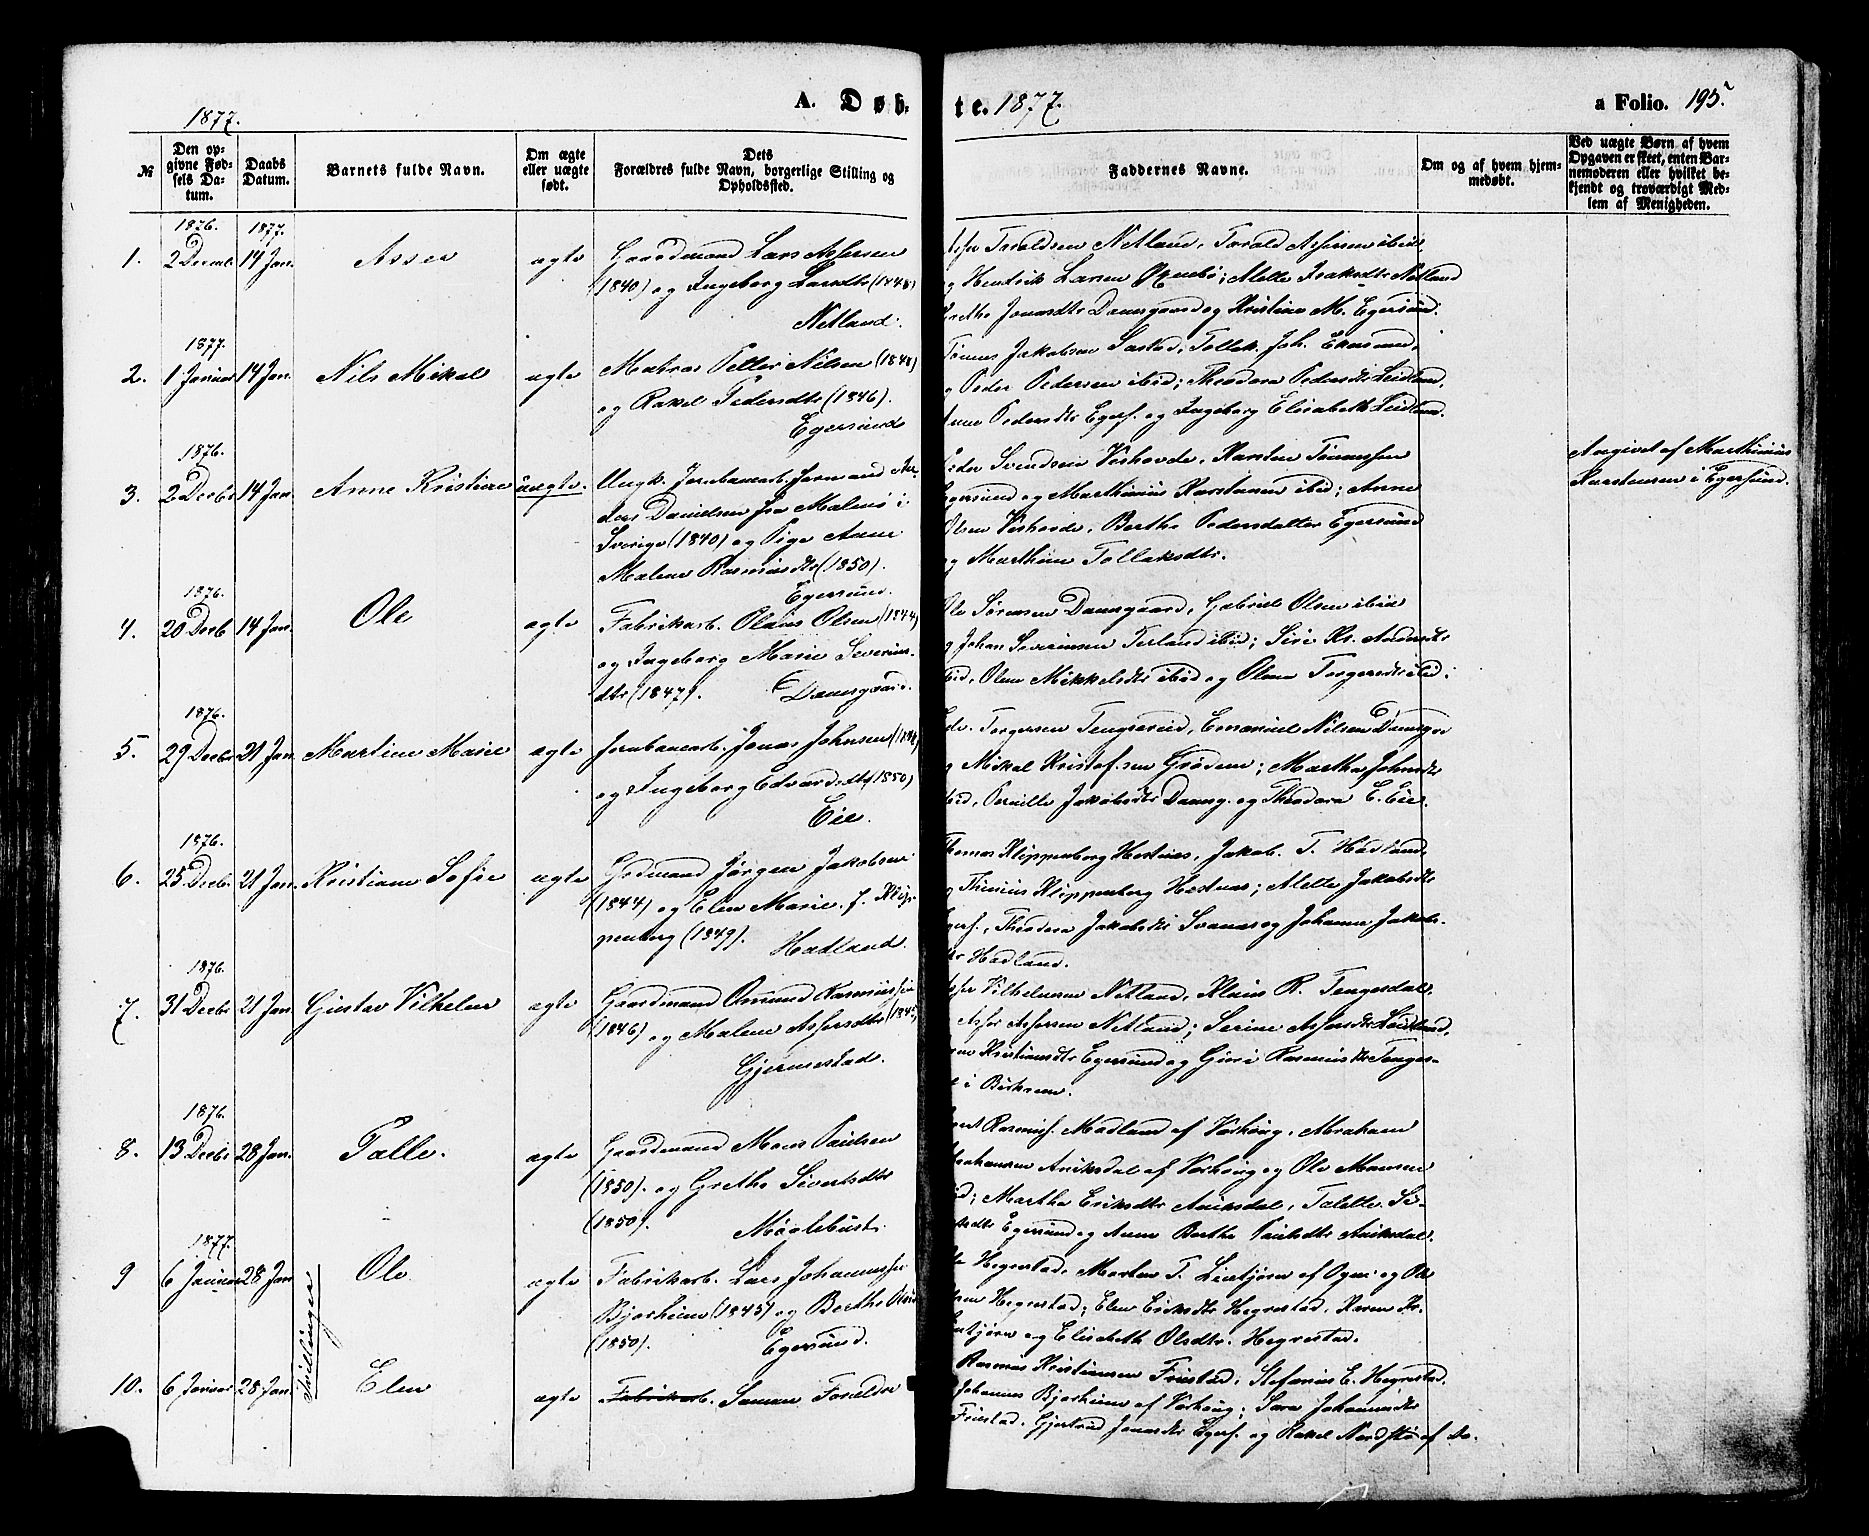 A. Døb- te. 1877.
a Folio. 195.
1877.
№
Den opgivne Fødsels Datum.
Daabs Datum.
Barnets fulde Navn.
Om ægte eller uægte født.
Dets Forældres fulde Navn, borgerlige Stilling og Opholdsted.
Faddernes Navne.
Om og af hvem hjemmedøbt.
Ved uægte Børn af hvem Opgaven er skeet, enten Barnemoderen eller hvilket bekjendt og troværdigt Medlem af Menigheden.
1876. 1877.
1. 2 Decmb 14 Jan. Asser ægte Gaardmand Lars Assersen
(1840) og Ingeborg Larsdtr (1848)
Netland.
Taraldsen Netland, Tarald Assersen ibid,
og Hendrik Larsen; Malle Isaksdtr Netland
Grethe Jonasdtr Damsgaard og Kristine M. Egersund.
1877.
2. 1 Januar 14 Jan. Nils Mikal ægte Matros Petter Nilsen (1848)
og Rakel Pedersdtr (1846).
Egersund
Tønnes Jakobsen Tollak Joh.
og Peder Pedersen ibid; Theodora Pedersdtr Leidland,
Pedersdtr Egers. og Ingeborg Elisabeth Leidland.
1876.
3. 2 Decbr 14 Jan. Anne Kristine uægte. Ungk. Jernbanearb. Svend An-
ders Danielsen fra Malmø i
Sverige (1840) og Pige Anne
Malene Rasmusdtr (1850).
Egersund.
Peder Svendsen Veshovde, Karsten Tønnessen
Egersund og Marthinius Karstensen ibid; Anne
Olsen Veshovde, Berthe Pedersdatter Egersund
og Marthine Tollaksdtr.
Angivet af Marthinius
Karstensen i Egersund.
1876.
4. 20 Decb 14 Jan. Ole ægte Fabrikarb. Olaus Olsen (1844)
og Ingeborg Marie Severins-
dtr (1847). Damsgaard.
Ole Sørensen Damsgaard, Gabriel Olsen ibid
og Johan Severinsen Terland ibid; Siri Kr. Andersdtr
ibid, Olene Mikkelsdtr ibid og Olene Torgersdtr ibid.
1876.
5. 29 Decbr 21 Jan. Martine Marie ægte Jernbanearb. Jonas Johnsen
og Ingeborg Edvardsdtr (1850)
Eie.
Torgersen Tengesereid, Emanuel Nilsen Damsgrd
og Mikal Kristofersen Grødem; Martha Johnsdtr
ibid, Pernille Jakobsdtr Damsg. og Theodora E. Eie.
1876.
6. 25 Decbr. 21 Jan. Kristiane Sofie ægte Grdmand Jørgen Jakobsen
(1844) og Elen Marie f. Klip-
penberg (1849). Hadland.
Thomas Klippenberg Hestnes, Jakob T. Hadland,
og Thinius Klippenberg Hestnes; Malle Jakobsdtr
Egers., Theodora Jakobsdtr Svanes og Johanne Jakobs-
dtr Hadland.
1876.
7. 31 Decbr 21 Jan. Gustav Vilhelm ægte Gaardmand Omund Rasmussen
(1846) og Malene Assersdtr (1845)
Gjermestad.
Vilhelmsen Netland, Klaus R. Tengesdal,
Asser Assersen Netland; Serine Assersdtr Leidland,
Kristiansdtr Egersund og Guri Rasmusdtr Tenges-
i Birkrem.
1876.
8. 13 Decbr 28 Jan. Talle. ægte Gaardmand Mons Paulsen
(1850) og Grethe Sivertsdtr
(1850).
Rasmus. Madland af Varhoug, Abraham
Abrahamsen Aniksdal af Varhoug og Ole Monsen
ibid; Martha Eriksdtr Aniksdal, Talette Si-
vertsdtr Egersund og Anne Berthe Paulsdtr Aniksdal.
1877.
9 6 Januar 28 Jan Ole ægte Fabrikarb. Lars Johannessen
Bjorheim (1845) og Berthe
(1850). Egersund.
Hegrestad, Morten T. Lintjørn af Ogne og Ole
Hegrestad; Elen Eriksdtr Hegrestad, Karen Kr.
Lintjørn og Elisabeth Olsdtr. Hegrestad.
Tvillinger
10. 6 Januar 28 Jan. Elen ægte Fabrikarb. Samme Forældre
Rasmus Kristiansen Friestad, Stefanus E. Hegrestad,
Johannes Bjorheim af Varhoug; Sara Johannesdtr
Friestad, Gjertrud Jonasdtr Egers. og Rakel